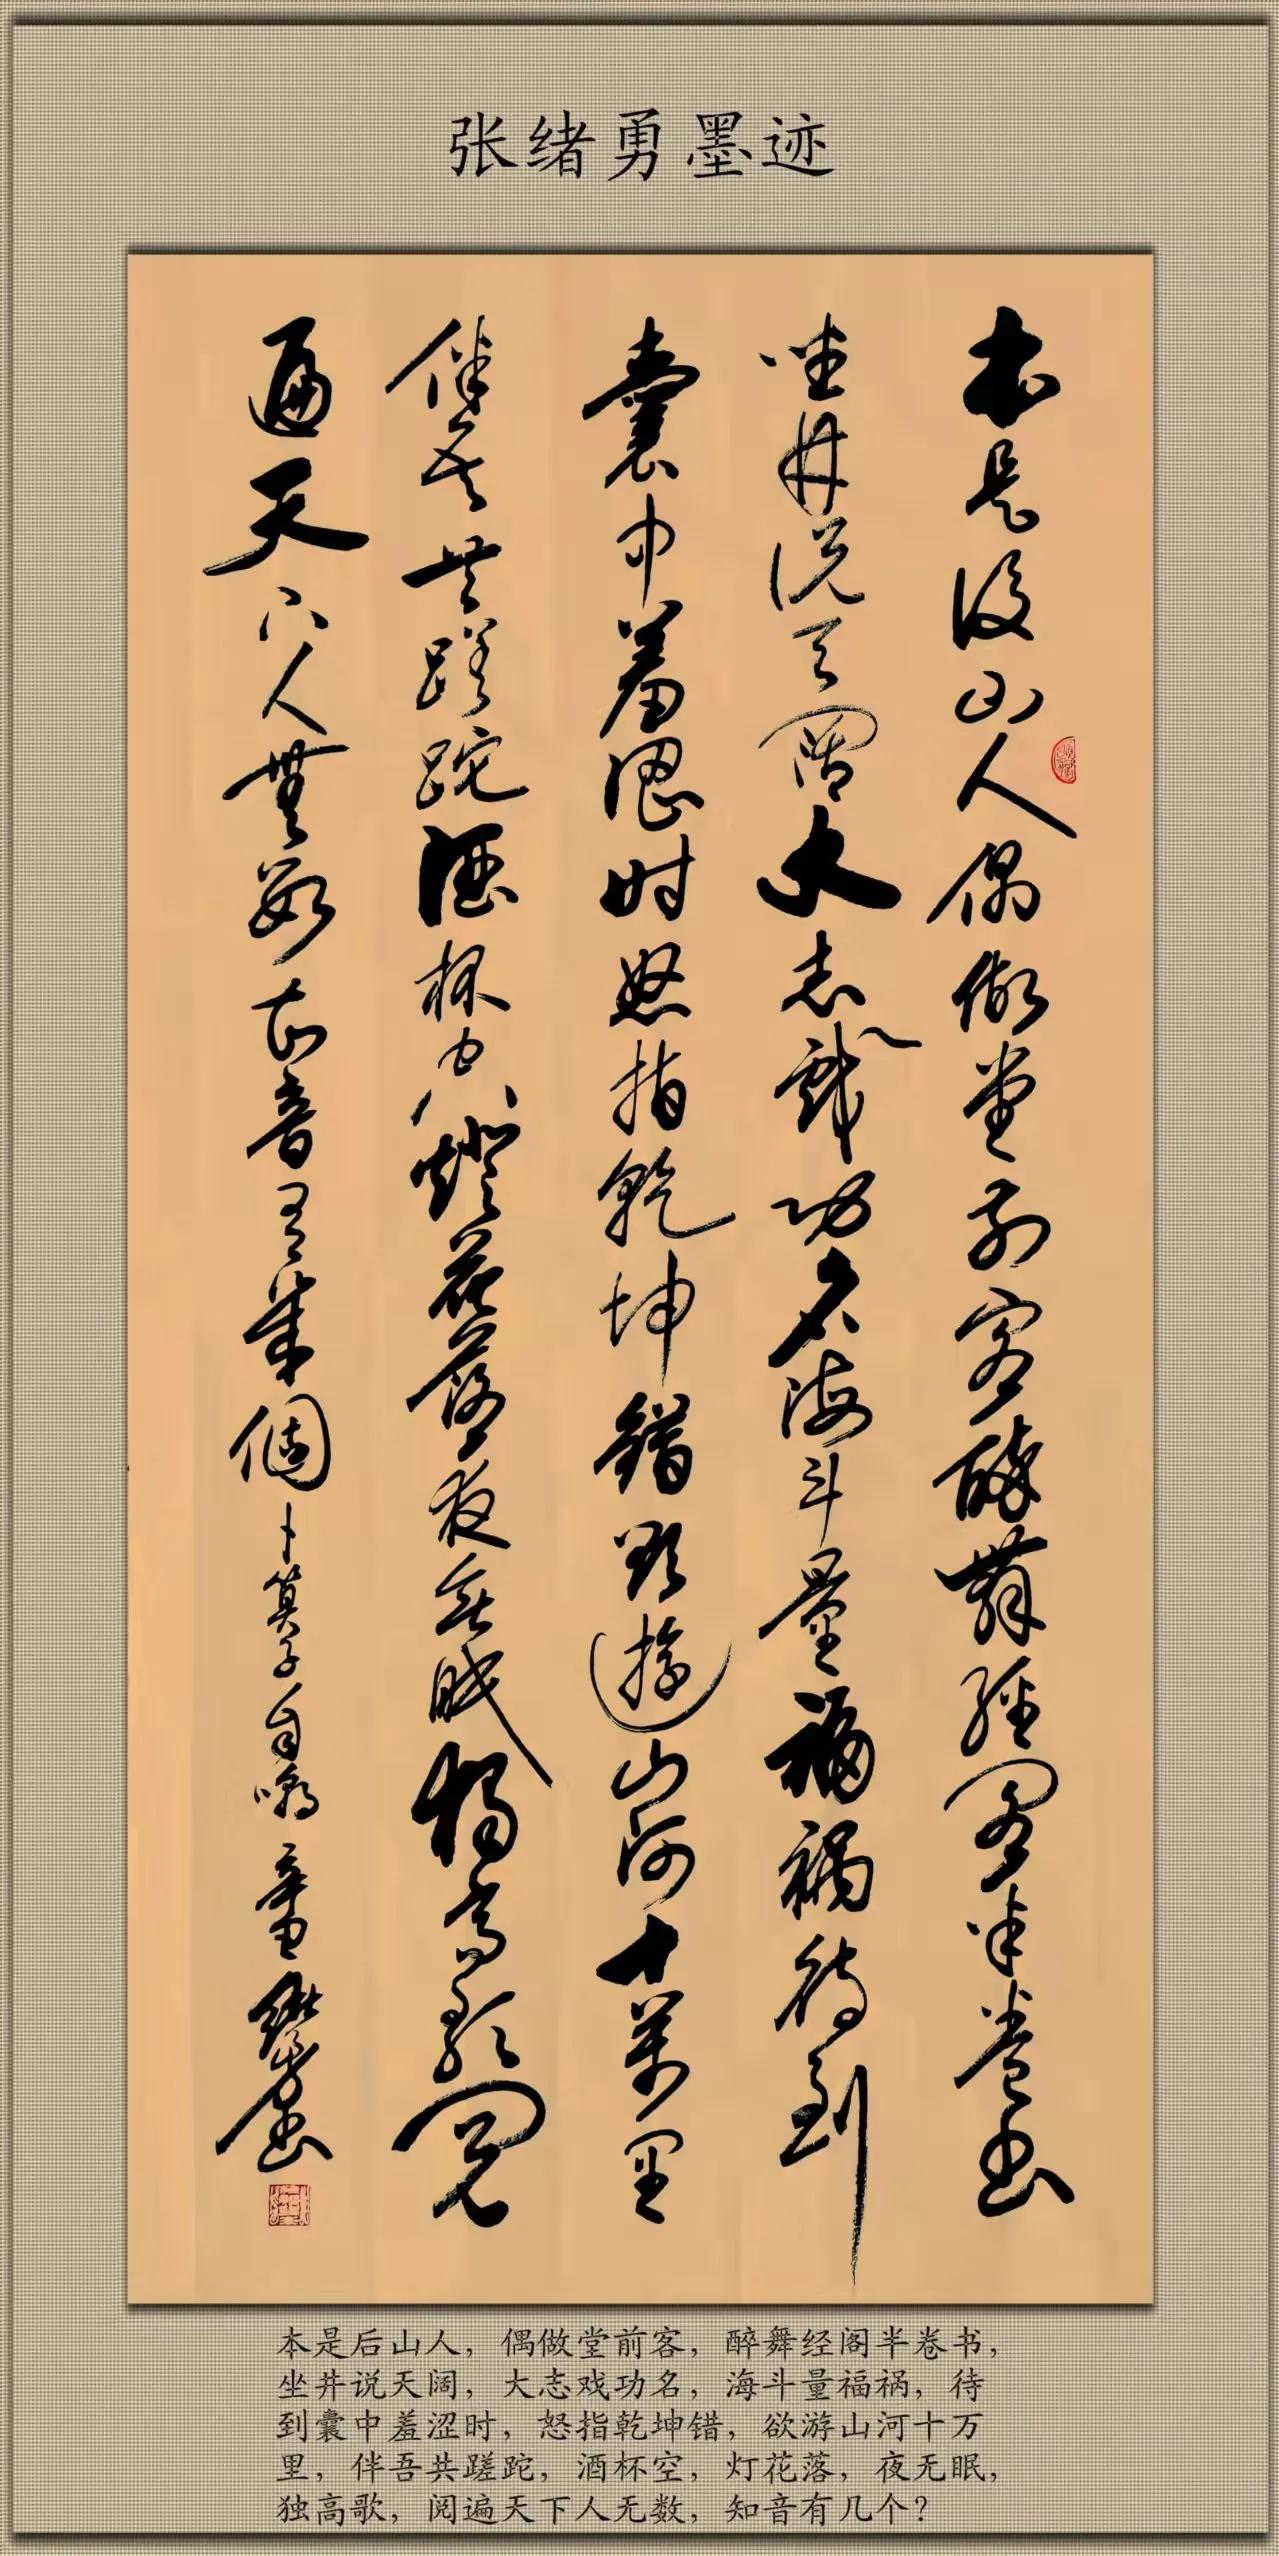 张绪勇墨迹
本是后山人偶做堂前客醉舞经阁半卷书
坐井说天阔大志戏功名海斗量福祸待到
囊中羞涩时怒指乾坤错欲遊山河十萬里
伴吾共蹉跎酒杯空燈花落夜无眠独高歌阅
遍天下人無数知音有几個
卜算子自嘲
本是后山人，偶做堂前客，醉舞经阁半卷书，
坐井说天阔，大志戏功名，海斗量福祸，待
到囊中羞涩时，怒指乾坤错，欲游山河十万
里，伴吾共蹉跎，酒杯空，灯花落，夜无眠，
独高歌，阅遍天下人无数，知音有几个？